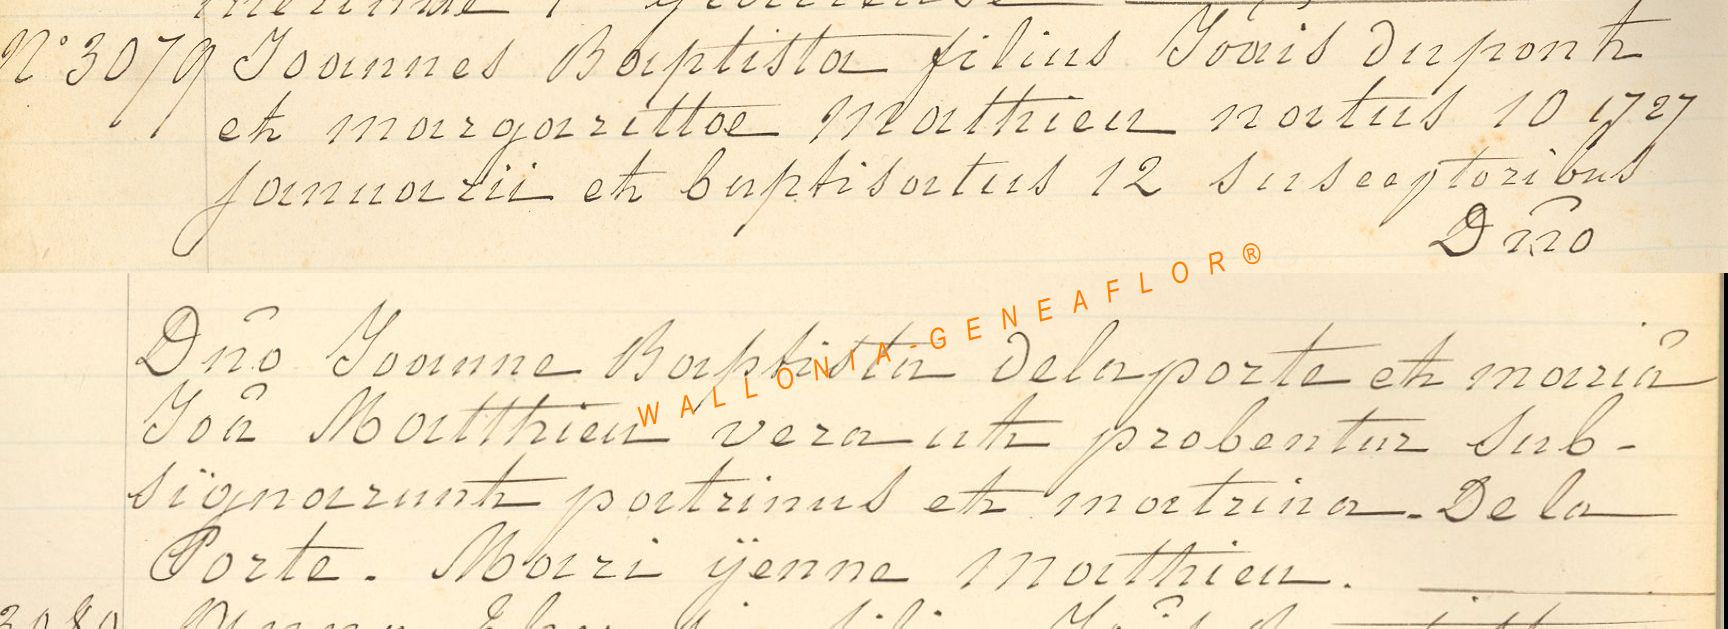 N° 3079 Joannes Baptista filius Joais dupont
et margarittae Mathieu natus 10 1727
januarii et baptisatus 12 susceptoribus
Dn̂o
WALLONIA-GENEAFLOR®
Dn̂o Joanne Baptista delaporte et mariâ
Joâ Matthieu vera ut probentur sub-
sïgnarunt patrinus et matrina. De la
Porte. Mari ÿenne Matthieu.
3080